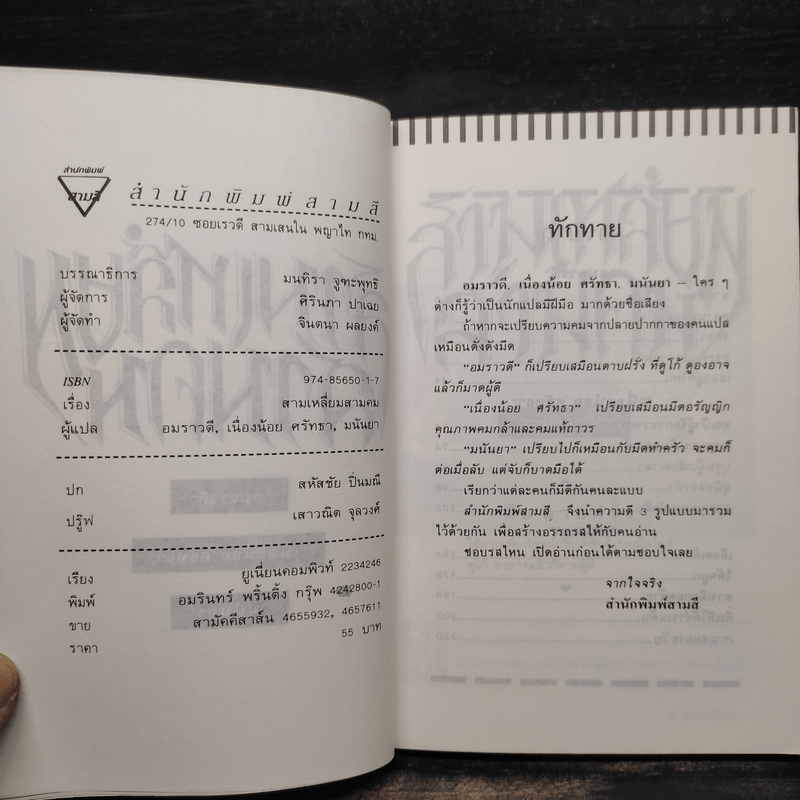 สำนักพิมพ์
สามสี
สำนักพิมพ์สามสี
274/10 ซอยเรวดี สามเสนใน พญาไท กทม.
บรรณาธิการ มนทิรา จูฑะพุทธิ
ผู้จัดการ ศิรินภา ปาเฉย
ผู้จัดทำ จินตนา ผลยงค์
ISBN 974-85650-1-7
เรื่อง สามเหลี่ยมสามคม
ผู้แปล อมราวดี, เนื่องน้อย ศรัทธา, มนันยา
ปก สหัสชัย ปิ่นมณี
ปรู๊ฟ เสาวณิต จุลวงศ์
เรียง ยูเนี่ยนคอมพิวท์ 2234246
พิมพ์ อมรินทร์ พริ้นติ้ง กรุ๊พ 4242800-1
ขาย สามัคคีสาส์น 4655932, 4657611
ราคา 55 บาท
ทักทาย
อมราวดี, เนื่องน้อย ศรัทธา, มนันยา — ใคร ๆ
ต่างก็รู้ว่าเป็นนักแปลมีฝีมือ มากด้วยชื่อเสียง
ถ้าหากจะเปรียบความคมจากปลายปากกาของคนแปล
เหมือนดั่งดังมีด
“อมราวดี” ก็เปรียบเสมือนดาบฝรั่ง ที่ดูโก้ ดูองอาจ
แล้วก็มาดผู้ดี
“เนื่องน้อย ศรัทธา” เปรียบเสมือนมีดอรัญญิก
คุณภาพคมกล้าและคมแท้ถาวร
“มนันยา” เปรียบไปก็เหมือนกับมีดทำครัว จะคมก็
ต่อเมื่อลับ แต่จับก็บาดมือได้
เรียกว่าแต่ละคนก็มีดีกันคนละแบบ
สำนักพิมพ์สามสี จึงนำความดี 3 รูปแบบมารวม
ไว้ด้วยกัน เพื่อสร้างอรรถรสให้กับคนอ่าน
ชอบรสไหน เปิดอ่านก่อนได้ตามชอบใจเลย
จากใจจริง
สำนักพิมพ์สามสี